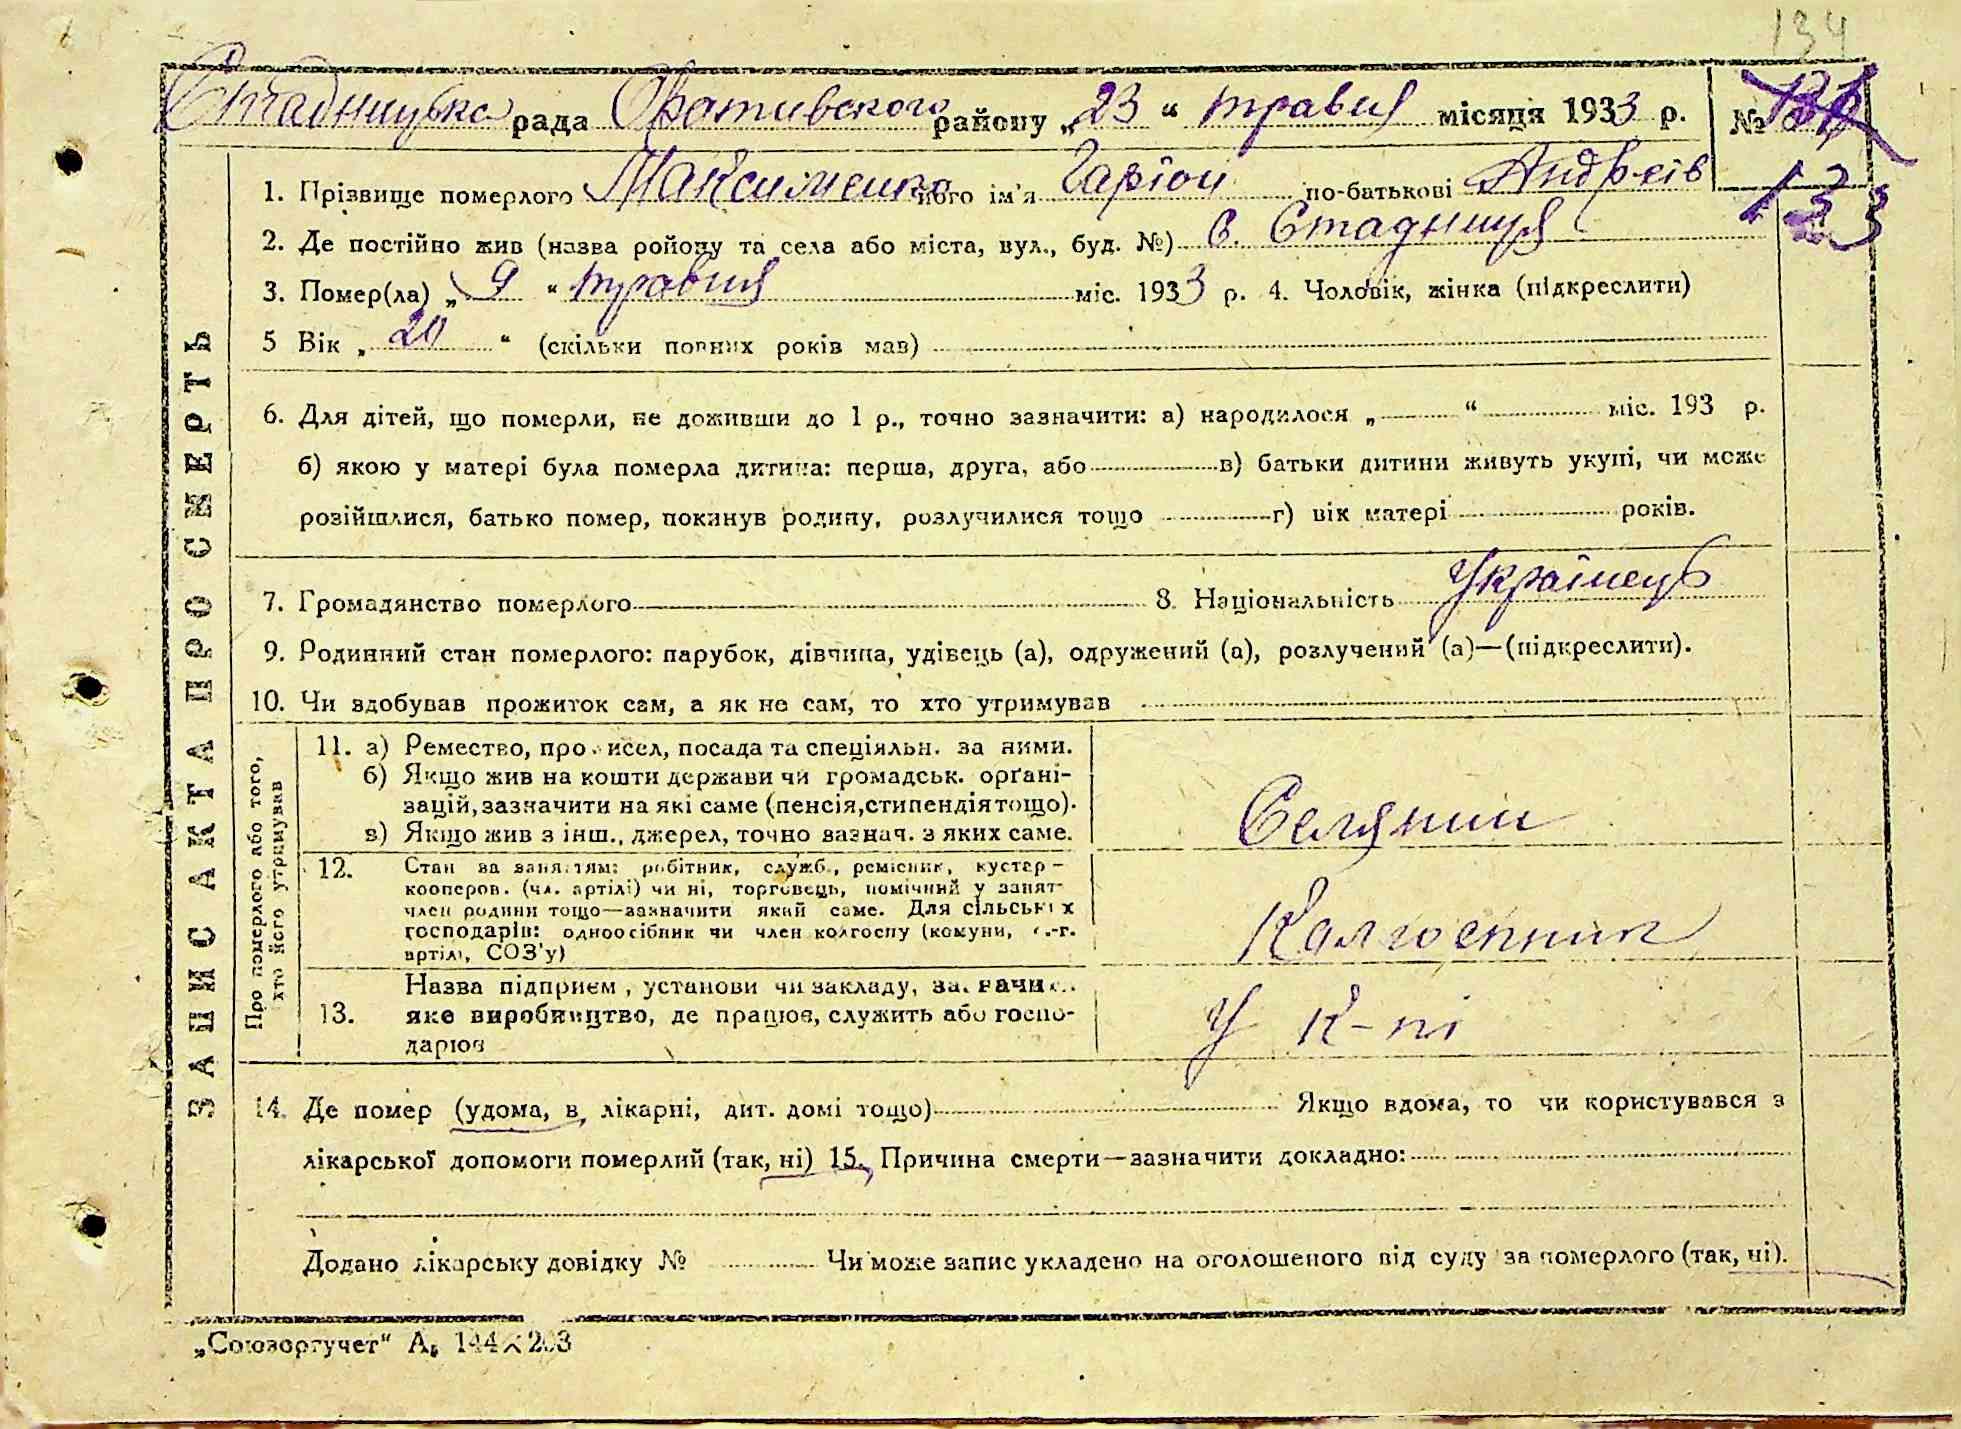 134
Стадницька рада Фастівського району „23“ травня місяця 1933 р. №
133
1. Прізвище померлого Максименко його ім'я Гаріон по-батькові Андреів
2. Де постійно жив (назва ройону та села або міста, вул., буд. №) с. Стадниця
3. Помер(ла) „9“ травня міс. 1933 р. 4. Чоловік, жінка (підкреслити)
5 Вік „20“ (скільки повних років мав)
6. Для дітей, що померли, не доживши до 1 р., точно зазначити: а) народилося „ “ міс. 193 р.
б) якою у матері була померла дитина: перша, друга, або в) батьки дитини живуть укупі, чи може
розійшлися, батько помер, покинув родину, розлучилися тощо г) вік матері років.
7. Громадянство померлого 8. Національність Українець
9. Родинний стан померлого: парубок, дівчина, удівець (а), одружений (а), розлучений (а)—(підкреслити).
10. Чи здобував прожиток сам, а як не сам, то хто утримував
ЗАПИС АКТА ПРО СМЕРТЬ
Про померлого або того,
хто його утримував
11. а) Ремество, промисел, посада та спеціяльн. за ними.
б) Якщо жив на кошти держави чи громадськ. орґані-
зацій, зазначити на які саме (пенсія, стипендія тощо).
в) Якщо жив з інш., джерел, точно зазнач. з яких саме.
Селянин
12. Стан за заняттям: робітник, служб., ремісник, кустар-
кооперов. (чл. артілі) чи ні, торговець, помічний у занят-
член родини тощо—зазначити який саме. Для сільських
господарів: одноосібник чи член колгоспу (комуни, с.-г.
артілі, СОЗ'у)
Колгоспник
13. Назва підприєм, установи чи закладу, зазначи
яке виробництво, де працює, служить або госпо-
дарює
У К-пі
14. Де помер (удома, в лікарні, дит. домі тощо) Якщо вдома, то чи користувався з
лікарської допомоги померлий (так, ні) 15. Причина смерти—зазначити докладно:
Додано лікарську довідку № Чи може запис укладено на оголошеного від суду за померлого (так, ні).
„Союзоргучет“ А, 144×203